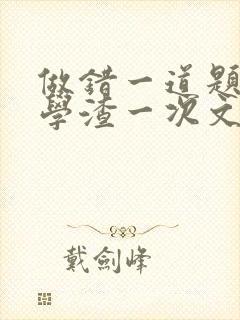 做錯一道題
學渣一次文
戴劍峰